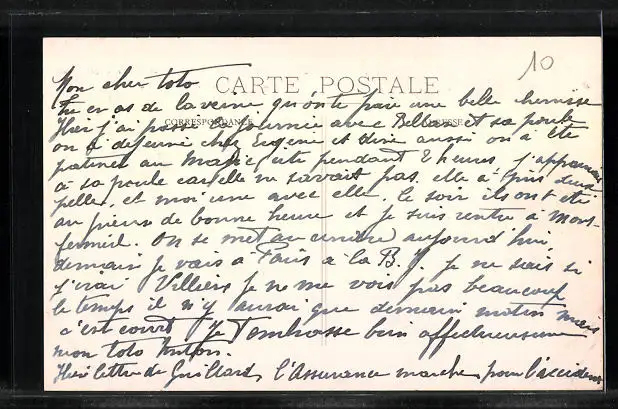 10
Mon cher toto CARTE POSTALE
tu en as de la veine qu'on te paie une belle chemise
CORRESPONDANCE ADRESSE
Hier j'ai passé la journée avec Bellon et sa poule
on a déjeuné chez Eugénie et diné aussi on a été
patiner au Magic city pendant 2 heures, j'apprenais
à sa poule car elle ne savait pas, elle a pris deux
pelles, et moi une avec elle, le soir ils ont été
au pieux de bonne heure et je suis rentré à Mont-
fermeil. On se met au aujourd'hui,
demain je vais à Paris à la B. J. je ne sais si
j'irai Villiers je ne me vois pas beaucoup
le temps il n'y aurai que demain matin mais
c'est court Je t'embrasse bien affectueusement
mon toto
Hier lettre de Guillard, l'Assurance marche pour l'accident